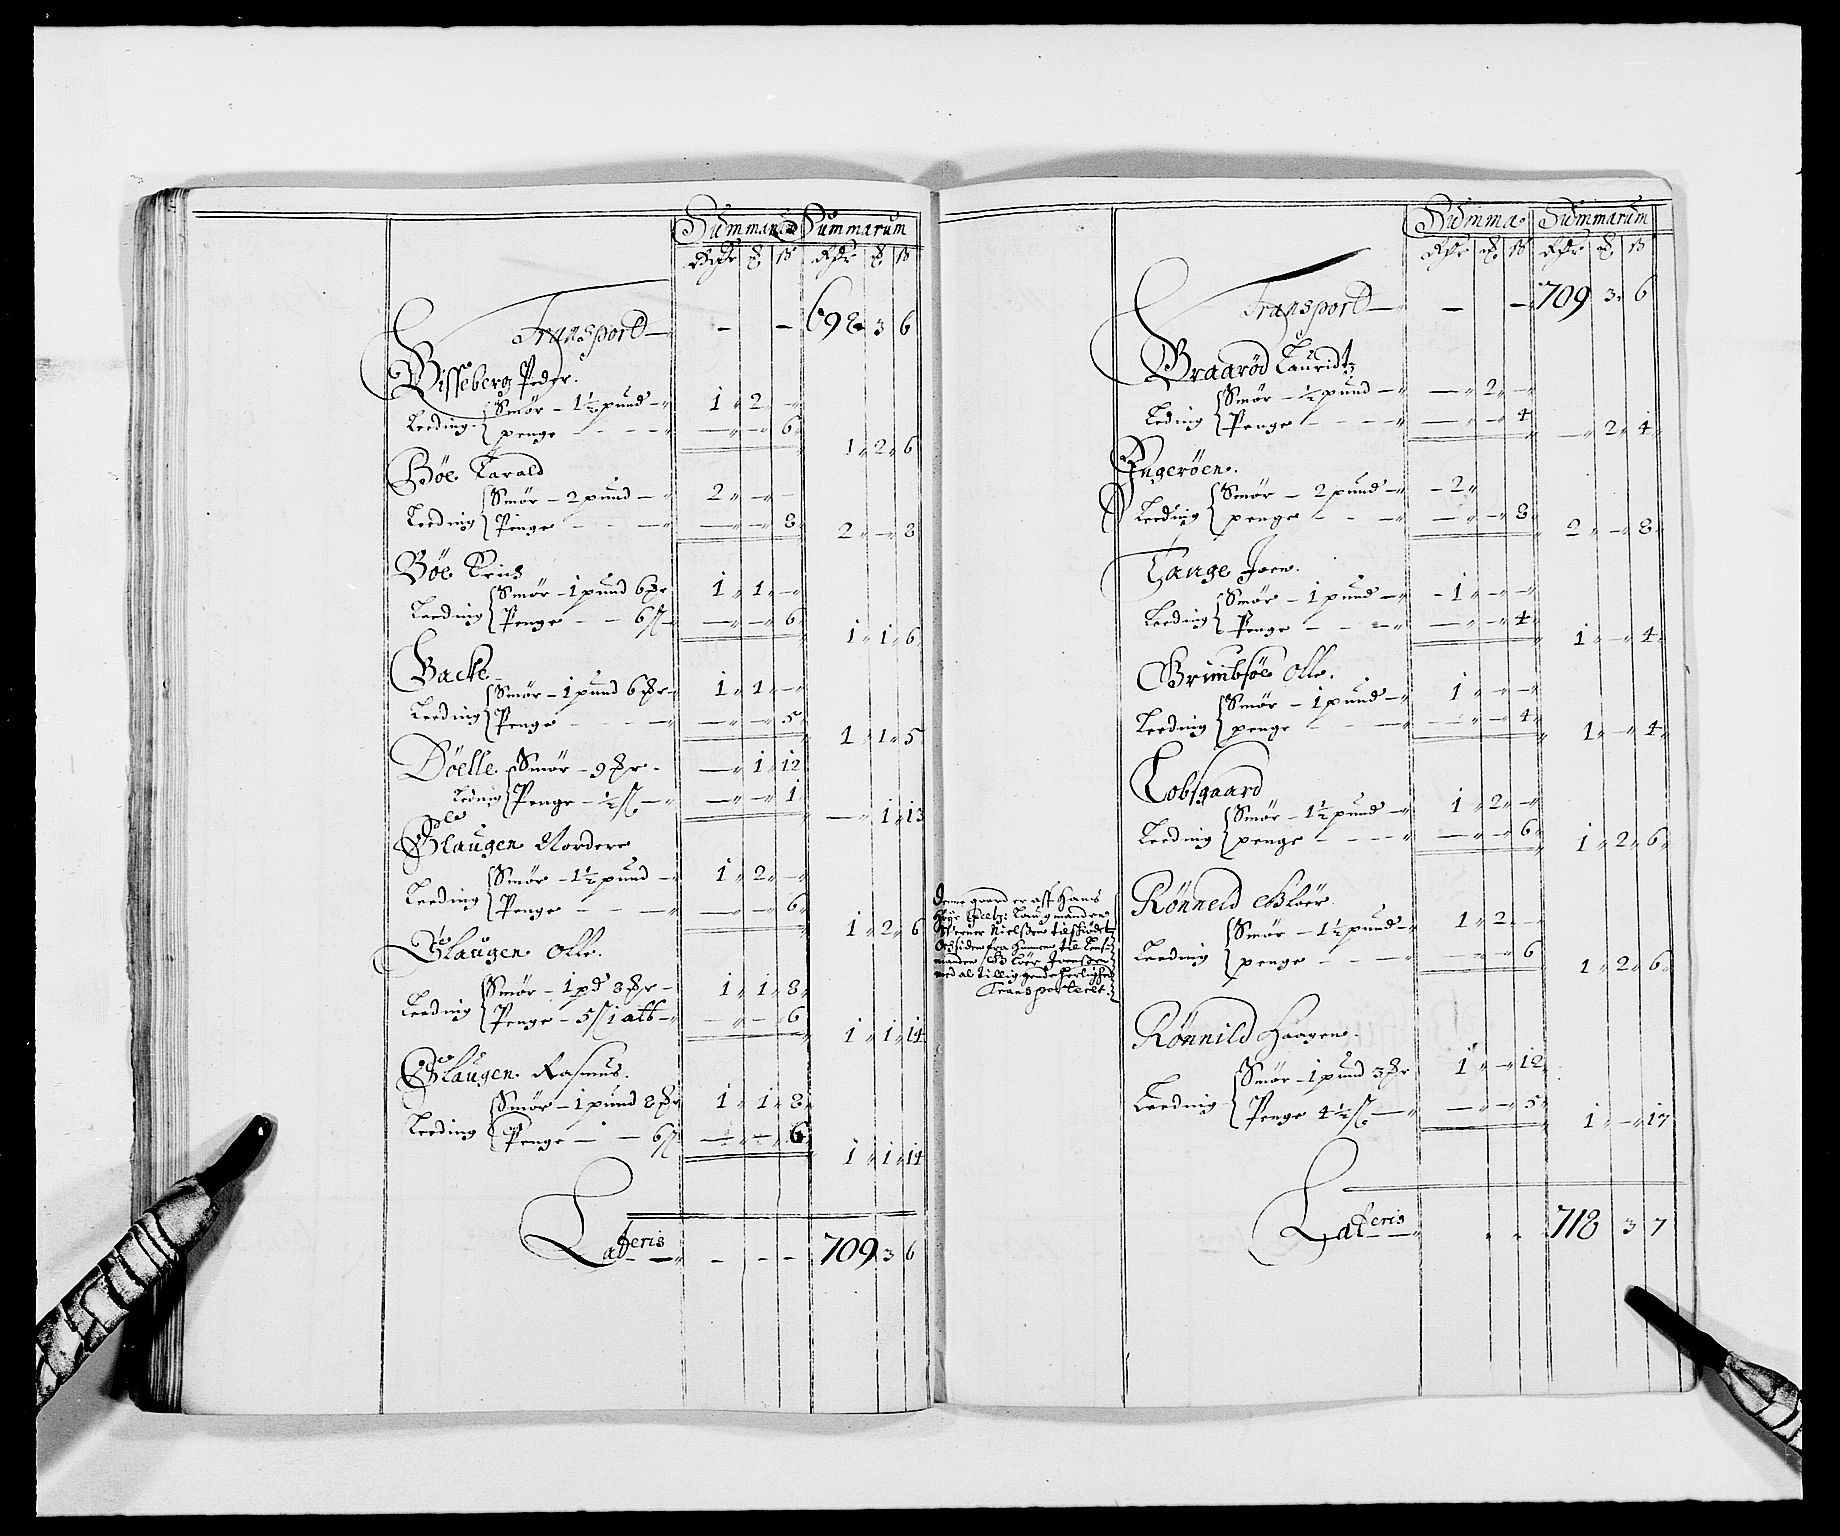 Summa Summarum
Rdr ß Rdr ß
Transport — — — 698 3 6
Bisseberg Peder.
Leeding Smör — 1½ pund — 1 2 —
penge — — — 6
1 2 6
Böe Tarald
Smör — 2 pund — 2 — —
Leeding Penge — — — 8
2 — 8
Böe
Smör — 1 pund 6 1 1 —
Leeding Penge — — 6 — — 6
1 1 6
Backe
Smör — 1 pund 6 1 1 —
Leeding Penge — — — 5
1 1 5
Döelle Smör — 9 — 1 12
Leding Penge — ½ — — 1
— 1 13
Glaugen Nordere
Smör — 1½ pund — 1 2 —
Leeding Penge — — — 6
1 2 6
Glaugen Olle.
Smör — 1 pd 8 1 1 8
Leeding Penge — 5 1 alb — — — 6
1 1 14
Glaugen Rasmus.
Smör — 1 pund 8 1 1 8
Leeding Penge — — 6 — — 6
1 1 14
Lateris — — — 709 3 6
Summa Summarum
Rdr ß Rdr ß
Transport — — — 709 3 6
Braarød Lauridtz
Smör — ½ pund — — 2 —
Leding Penge — — — 4
— 2 4
Ingeröen.
Smör — 2 pund — 2
Leeding penge — — — 8
2 — 8
Tange Joen.
Smör — 1 pund — 1 — —
Leeding Penge — — — 4
1 — 4
Grimbsöe Olle.
Smör — 1 pund — 1 — —
Leeding penge — — — 4
1 — 4
Lobsgaard
Smör — 1½ pund — 1 2 —
Leeding penge — — — 6
1 2 6
Denne gaard er aff Hans
Laugmanden
Werner Nielssen tilskiödet
Och siden fra hannem til Lens
manden
med al tilliggende herlighed
Transporterit.
Rönneld
Smör — 1½ pund — 1 2 —
Leeding penge — — — 6
1 2 6
Rönnild Haagen.
Smör — 1 pund 3 1 — 12
Leeding Penge 4½ — — — 5
1 — 17
Lateris 718 3 7